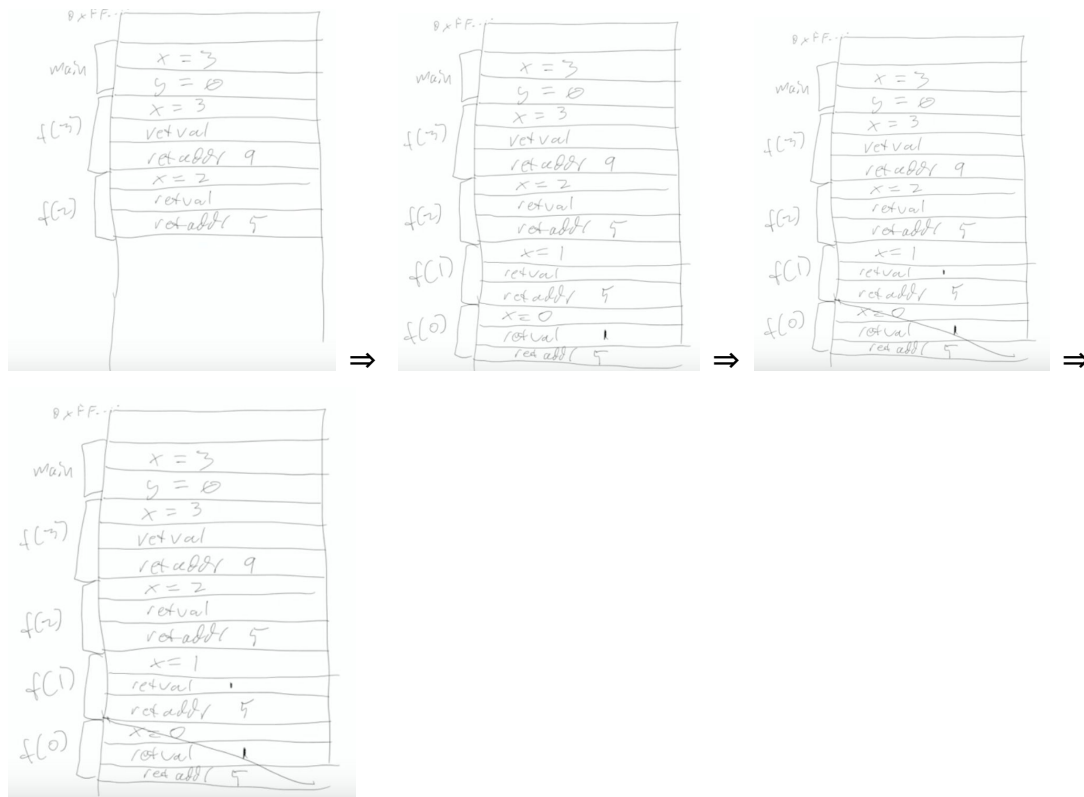 0xFF....
main
x = 3
y = 0
f(3)
x = 3
retval
retaddr 9
f(2)
x = 2
retval
retaddr 5
⇒
0xFF....
main
x = 3
y = 0
f(3)
x = 3
retval
retaddr 9
f(2)
x = 2
retval
retaddr 5
f(1)
x = 1
retval
retaddr 5
f(0)
x = 0
retval 1
retaddr 5
⇒
0xFF....
main
x = 3
y = 0
f(3)
x = 3
retval
retaddr 9
f(2)
x = 2
retval
retaddr 5
f(1)
x = 1
retval 1
retaddr 5
f(0)
x = 0
retval 1
retaddr 5
⇒
0xFF....
main
x = 3
y = 0
f(3)
x = 3
retval
retaddr 9
f(2)
x = 2
retval
retaddr 5
f(1)
x = 1
retval 1
retaddr 5
f(0)
x = 0
retval 1
retaddr 5